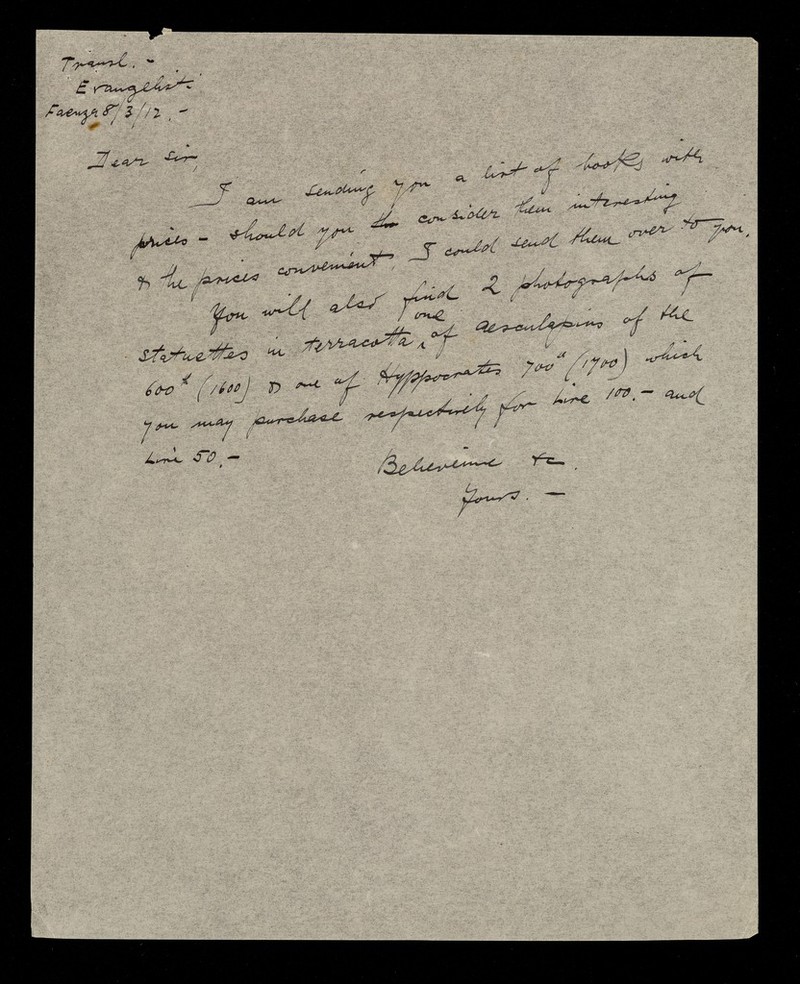 Transl. -
Evangelisti
Faenza 8/3/12. -
Dear Sir,
I am sending you a list of books with
prices - should you the consider them interesting
& the prices convenient, I could send them over to you.
You will also find 2 photographs of
statuettes in terracotta, one of Aesculapius of the
600t (1600) & one of Hyppocrates 700a (1700) which
you may purchase respectively for Lire 100.- and
Lire 50.-
Believe me &c.
Yours. -